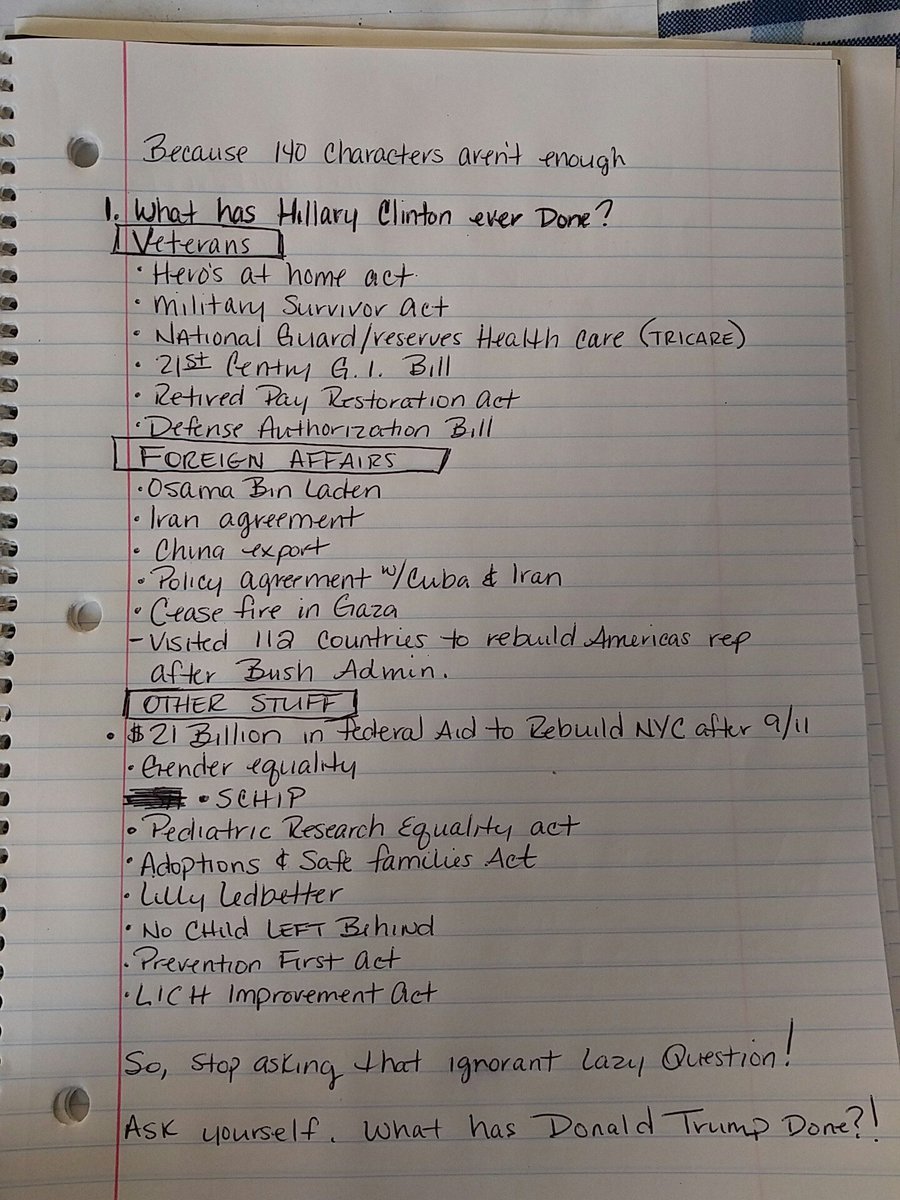 Because 140 characters aren't enough
1. What has Hillary Clinton ever Done?
Veterans
• Hero's at home act
• Military Survivor act
• National Guard/reserves Health Care (TRICARE)
• 21st Centry G.I. Bill
• Retired Pay Restoration act
• Defense Authorization Bill
FOREIGN AFFAIRS
• Osama Bin Laden
• Iran agreement
• China export
• Policy agreement w/Cuba & Iran
• Cease fire in Gaza
- Visited 112 countries to rebuild Americas rep
after Bush Admin.
OTHER STUFF
• $21 Billion in federal Aid to Rebuild NYC after 9/11
• Gender equality
• SCHIP
• Pediatric Research Equality act
• Adoptions & Safe families Act
• Lilly Ledbetter
• No Child LEFT Behind
• Prevention First act
• LICH Improvement Act
So, stop asking that ignorant lazy Question!
Ask yourself. What has Donald Trump Done?!